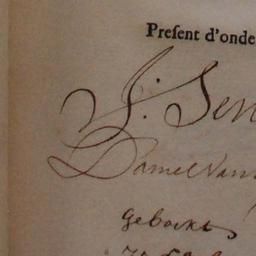 Preſent d'onde
J: Sen
Daniel Van
geboekt